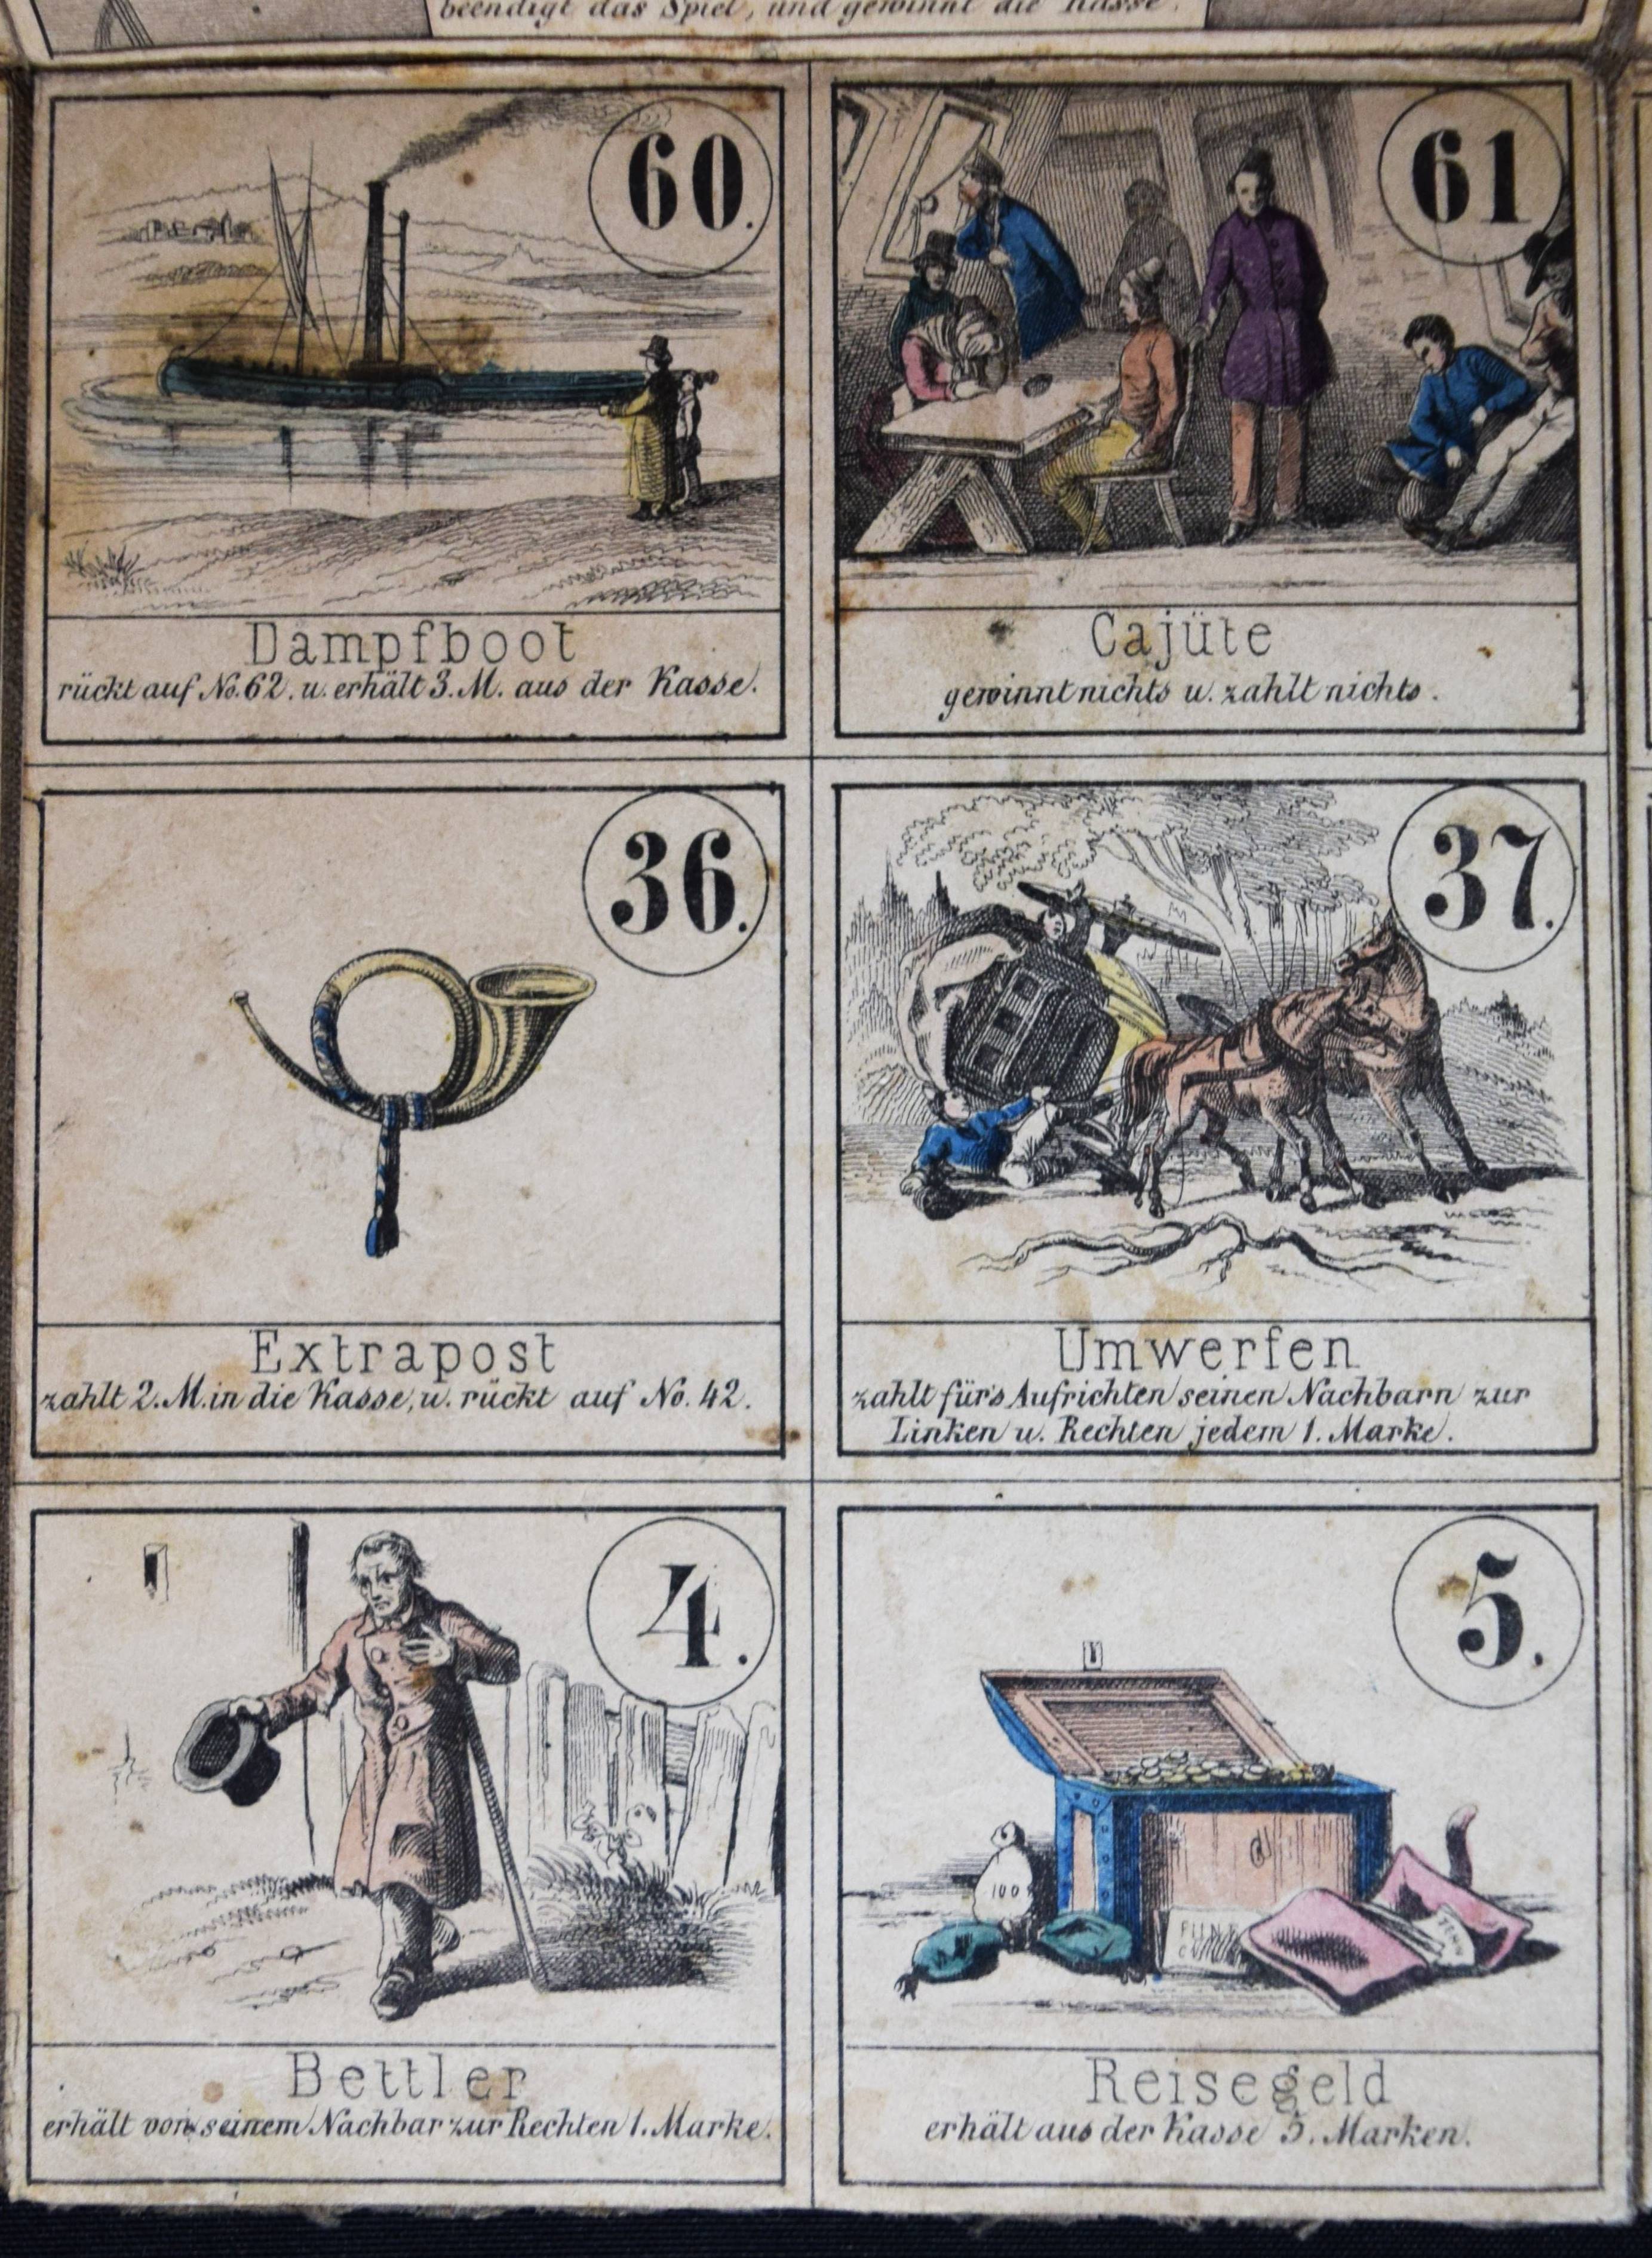 beendigt das Spiel, und gewinnt die Kasse.
60.
61
Dampfboot
rückt auf No. 62. u. erhält 3. M. aus der Kasse.
Cajüte
gewinnt nichts u. zahlt nichts.
36.
37.
Extrapost
zahlt 2. M. in die Kasse, u. rückt auf No. 42.
Umwerfen
zahlt für's Aufrichten seinen Nachbarn zur
Linken u. Rechten jedem 1. Marke.
4.
5.
100
Bettler
erhält von seinem Nachbar zur Rechten 1. Marke.
Reisegeld
erhält aus der Kasse 5. Marken.